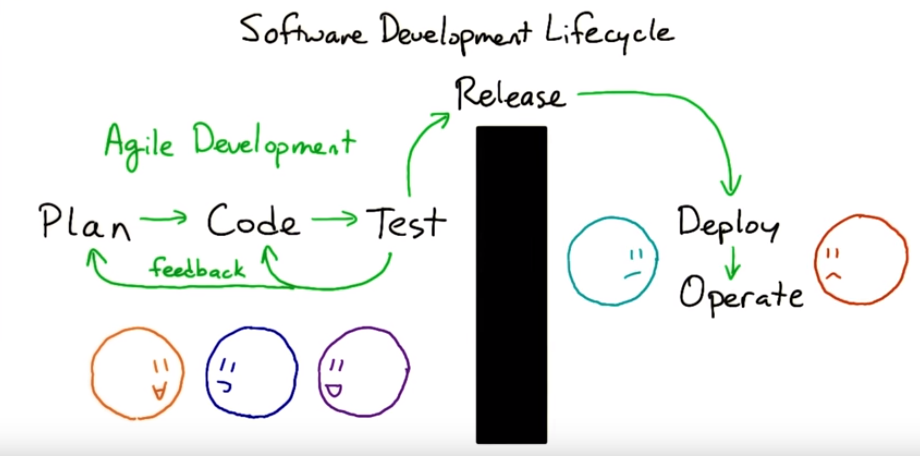 Software Development Lifecycle
Release
Agile Development
Plan → Code → Test
feedback
Deploy
Operate